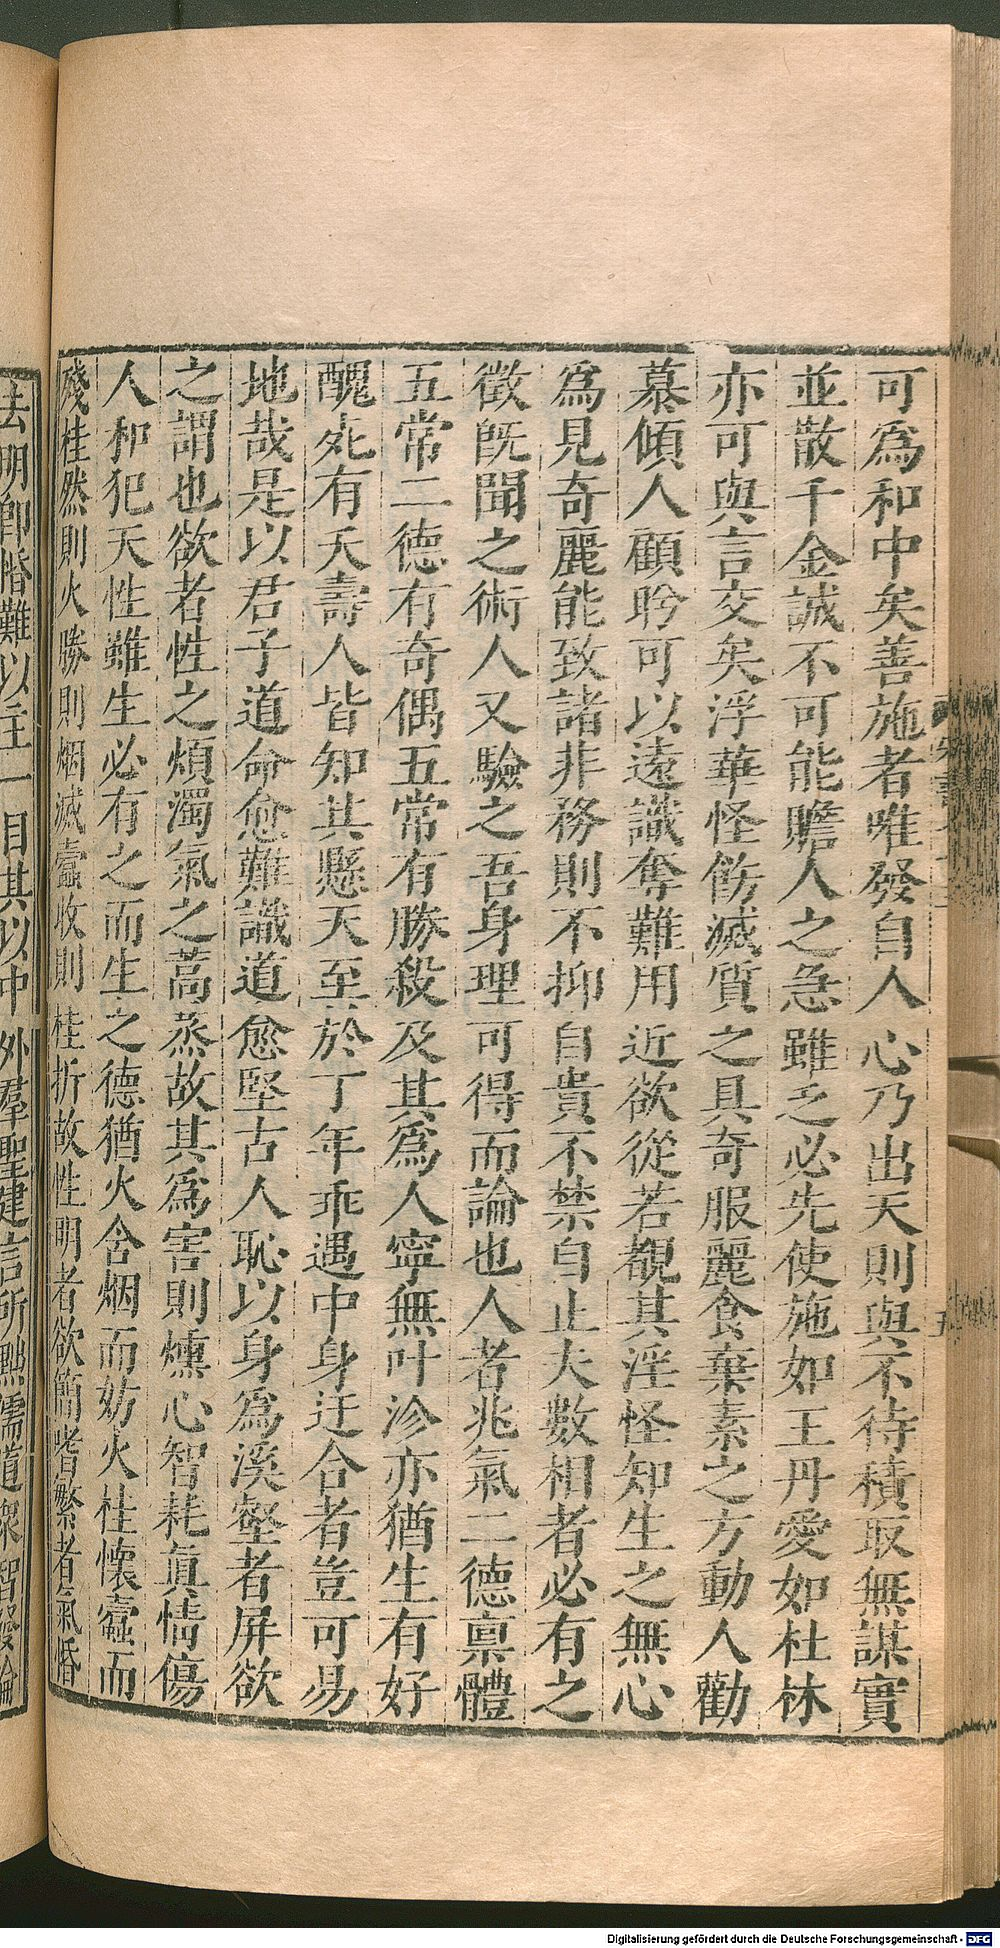 可爲和中矣善施者唯發自人心乃出天則與不待積取無謀實
並散千金誠不可能贍人之急雖乏必先使施如王丹愛如杜林
亦可與言交矣浮華怪飭滅質之具奇服麗食棄素之方動人勸
慕傾人顧盻可以遠識奪難用近欲從若覩其淫怪知生之無心
爲見奇麗能致諸非務則不抑自貴不禁自止夫數相者必有之
徵旣聞之術人又驗之吾身理可得而論也人者兆氣二德禀體
五常二德有奇偶五常有勝殺及其爲人寧無叶沴亦猶生有好
醜死有夭壽人皆知其懸天至於丁年乖遇中身迂合者豈可易
地哉是以君子道命愈難識道愈堅古人恥以身爲溪壑者屏欲
之謂也欲者性之煩濁氣之蒿蒸故其爲害則燻心智耗眞情傷
人和犯天性雖生必有之而生之德猶火含烟而妨火桂懷蠹而
殘桂然則火勝則烟滅蠹收則桂折故性明者欲簡嗜繁者氣惛
去明卽惛難以生一目其以中外羣聖建言所黜儒道衆智發論
Digitalisierung gefördert durch die Deutsche Forschungsgemeinschaft - DFG